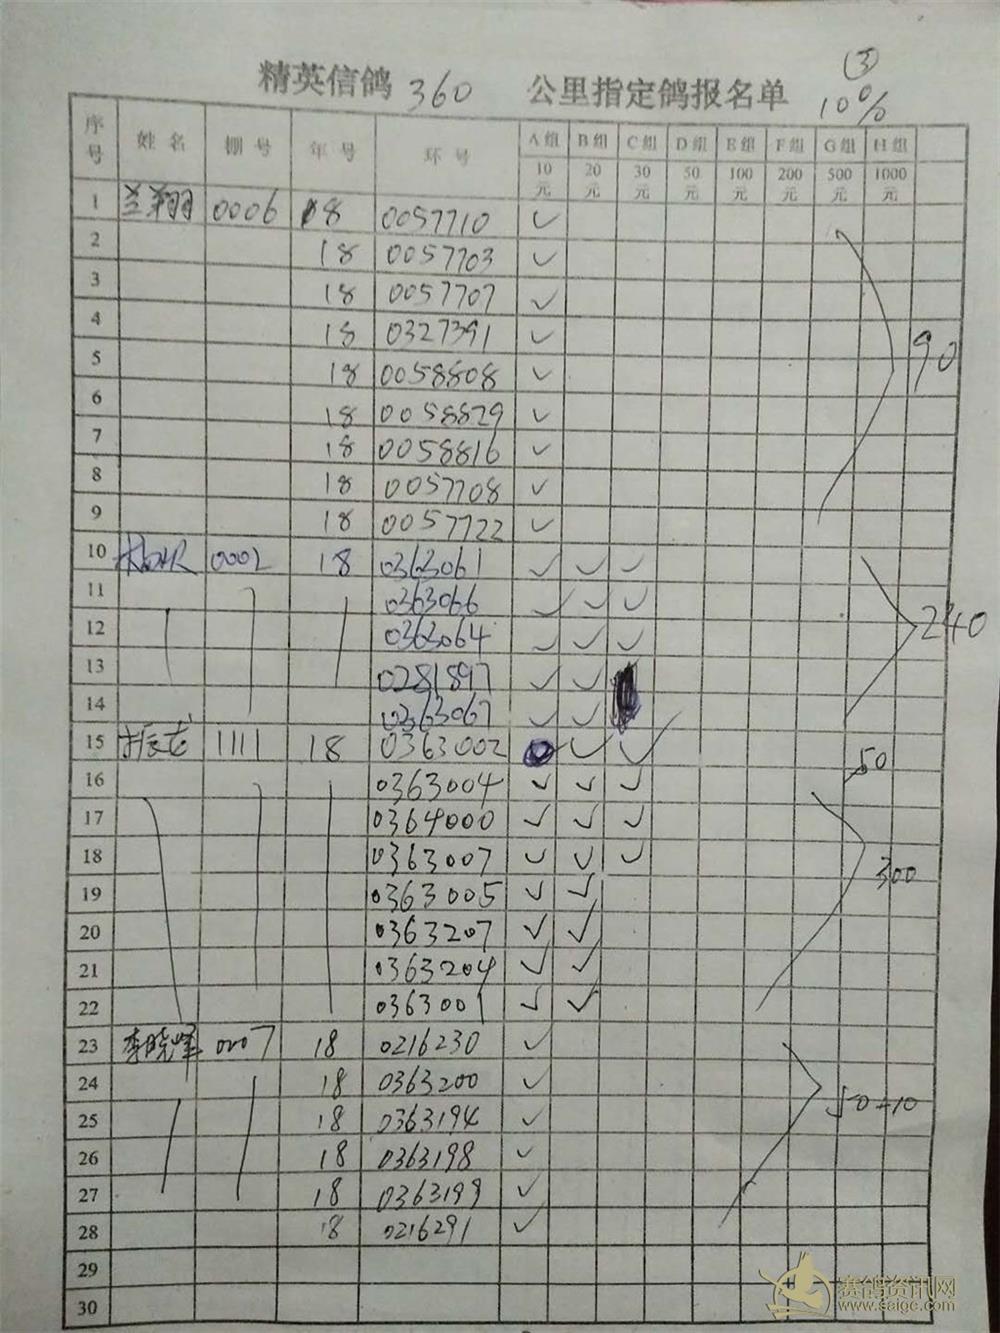 精英信鸽 360 公里指定鸽报名单 ③
10%
序号 姓名 棚号 年号 环号 A组 B组 C组 D组 E组 F组 G组 H组
10元 20元 30元 50元 100元 200元 500元 1000元
1 兰翔 0006 18 0057710 ✓
2 18 0057703 ✓
3 18 0057707 ✓
4 18 0327391 ✓
5 18 0058808 ✓ 90
6 18 0058829 ✓
7 18 0058816 ✓
8 18 0057708 ✓
9 18 0057722 ✓
10 0002 18 0363061 ✓ ✓ ✓
11 0363066 ✓ ✓ ✓
12 0363064 ✓ ✓ ✓ 240
13 0281897 ✓ ✓
14 0363067 ✓ ✓
15 1111 18 0363002 ✓ ✓ ✓ 50
16 0363004 ✓ ✓ ✓
17 0364000 ✓ ✓ ✓
18 0363007 ✓ ✓ ✓ 300
19 0363005 ✓ ✓
20 0363207 ✓ ✓
21 0363204 ✓ ✓
22 0363001 ✓ ✓
23 李晓峰 0007 18 0216230 ✓
24 18 0363200 ✓ 50+10
25 18 0363194 ✓
26 18 0363198 ✓
27 18 0363199 ✓
28 18 0216291 ✓
29
30
赛鸽资讯网
www.saigc.com